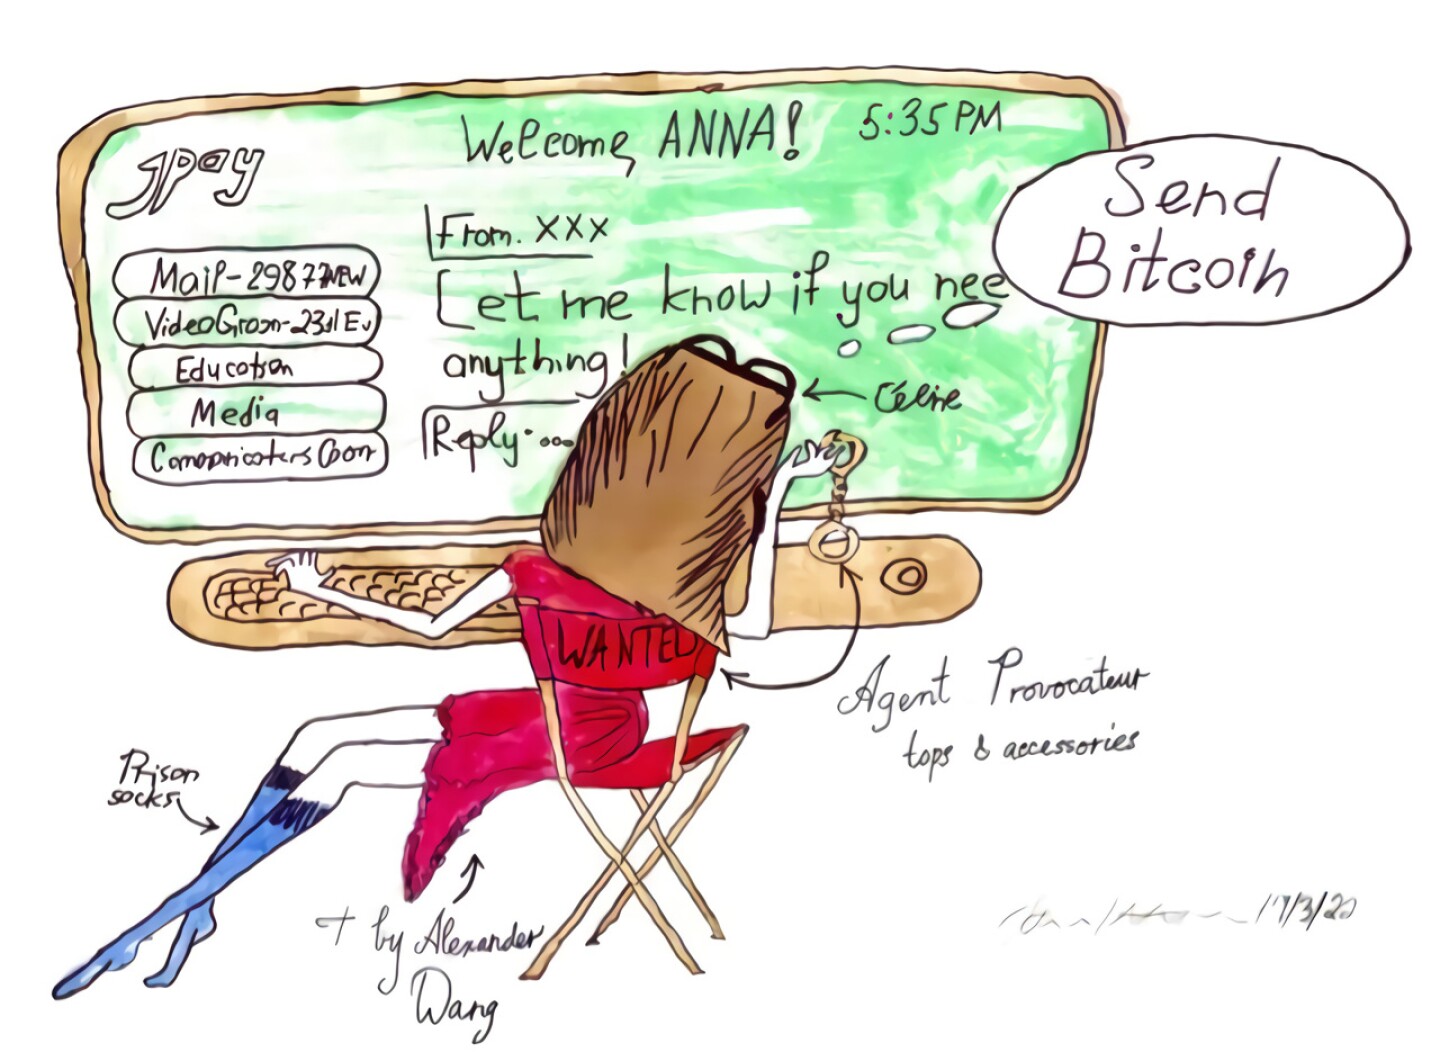 Welcome, ANNA!
5:35 PM
JPay
Send
Bitcoin
From. XXX
Mail-29877NEW
Let me know if you nee
anything!
Education
Media
Céline
Reply....
WANTED
Agent Provocateur
tops & accessories
Prison
socks
+ by Alexander
Wang
17/3/20